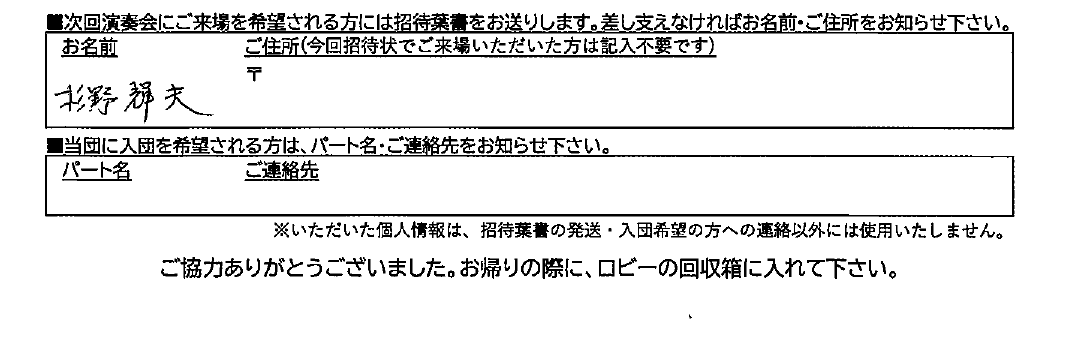 ■次回演奏会にご来場を希望される方には招待葉書をお送りします。差し支えなければお名前・ご住所をお知らせ下さい。
お名前 ご住所(今回招待状でご来場いただいた方は記入不要です)
〒
杉野輝夫
■当団に入団を希望される方は、パート名・ご連絡先をお知らせ下さい。
パート名 ご連絡先
※いただいた個人情報は、招待葉書の発送・入団希望の方への連絡以外には使用いたしません。
ご協力ありがとうございました。お帰りの際に、ロビーの回収箱に入れて下さい。